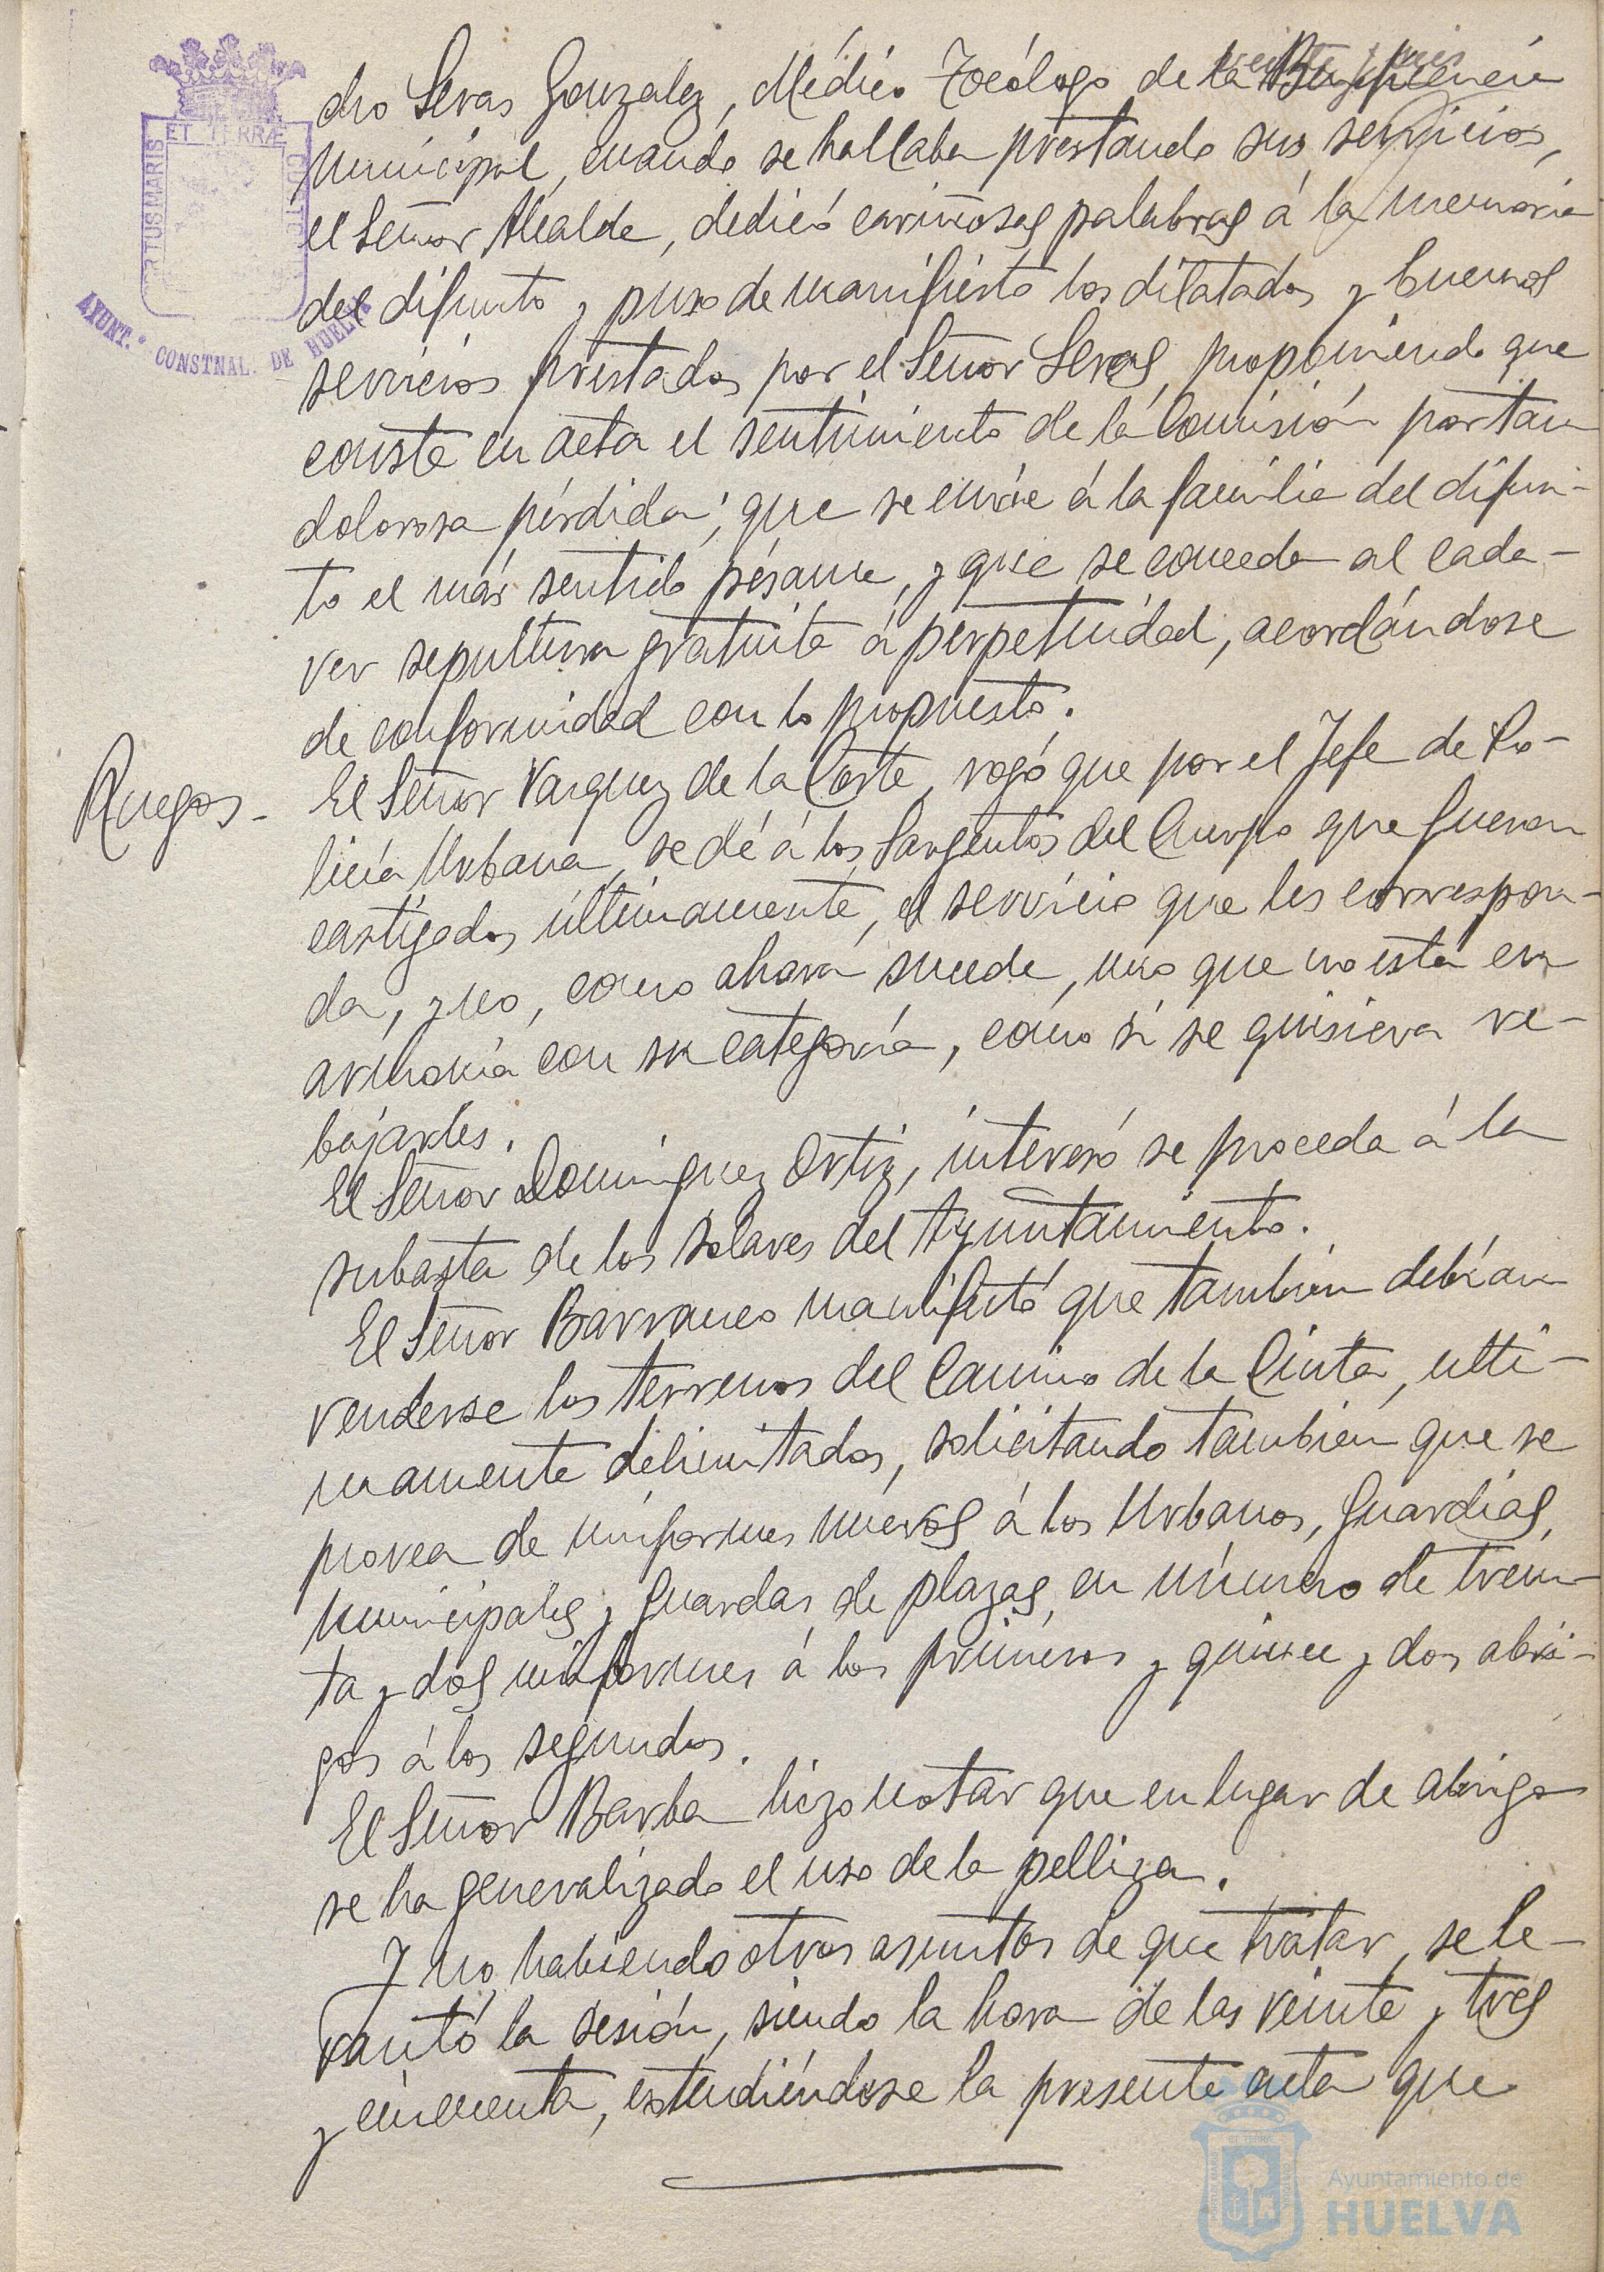 dro Seras Gonzalez, Médico Tocólogo de la Beneficencia
municipal, cuando se hallaba prestando sus servicios,
el Señor Alcalde, dedicó cariñosas palabras á la memoria
del difunto y puso de manifiesto los dilatados y buenos
servicios prestados por el Señor Seras, proponiendo que
conste en acta el sentimiento de la Comisión por tan
dolorosa pérdida; que se envíe á la familia del difun-
to el más sentido pésame, y que se conceda al cada-
ver sepultura gratuita á perpetuidad, acordándose
de conformidad con lo propuesto.
Ruegos-
El Señor Vazquez de la Corte, rogó que por el Jefe de Po-
licía Urbana, se dé á los Sargentos del Cuerpo que fueran
castigados últimamente, el servicio que les correspon-
da, y no, como ahora sucede, uno que no está en
armonía con su categoría, como si se quisiera re-
bajarles.
El Señor Dominguez Ortiz, interesó se proceda á la
subasta de los solares del Ayuntamiento.
El Señor Barranco manifestó que también debían
venderse los terrenos del Camino de la Cinta, ulti-
mamente delimitados, solicitando también que se
provea de uniformes nuevos á los Urbanos, Guardias
municipales y Guardas de plazas, en número de trein-
ta y dos uniformes á los primeros y quince y dos abri-
gos á los segundos.
El Señor Barba hizo notar que en lugar de abrigo
se ha generalizado el uso de la pelliza.
Y no habiendo otros asuntos de que tratar, se le-
vantó la sesión, siendo la hora de las veinte y tres
y cincuenta, extendiéndose la presente acta que
ET TERRÆ
PORTUS MARIS
CUSTODIA
AYUNT.º CONSTNAL. DE HUELVA
Ayuntamiento de
HUELVA